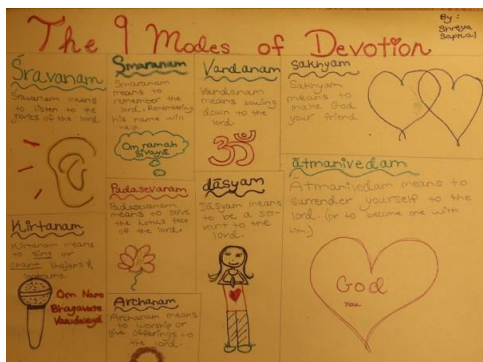 The 9 Modes of Devotion
By:
Shreya
Śravanam
Sravanam means
to listen to the
glories of the lord.
Kirtanam
Kirtanam means
to sing or
chant bhajans &
Om Namo
Bhagavate
Vasudevaya
Smaranam
Smaranam means
to remember the
lord. Remembering
his name will
help
Om namah
Sivaya
Padasevanam
Padasevanam
means to serve
the lord's feet
of the lord.
Archanam
Archanam means
to worship or
give offerings to
the lord.
Vandanam
Vandanam
means bowing
down to the
lord.
ॐ
dāsyam
Dāsyam means
to be a ser-
vant to the
lord.
Sakhyam
Sakhyam
means to
make God
your friend
ātmanivedam
Atmanivedam means to
surrender yourself to the
lord. (or to become one with
him)
God
You